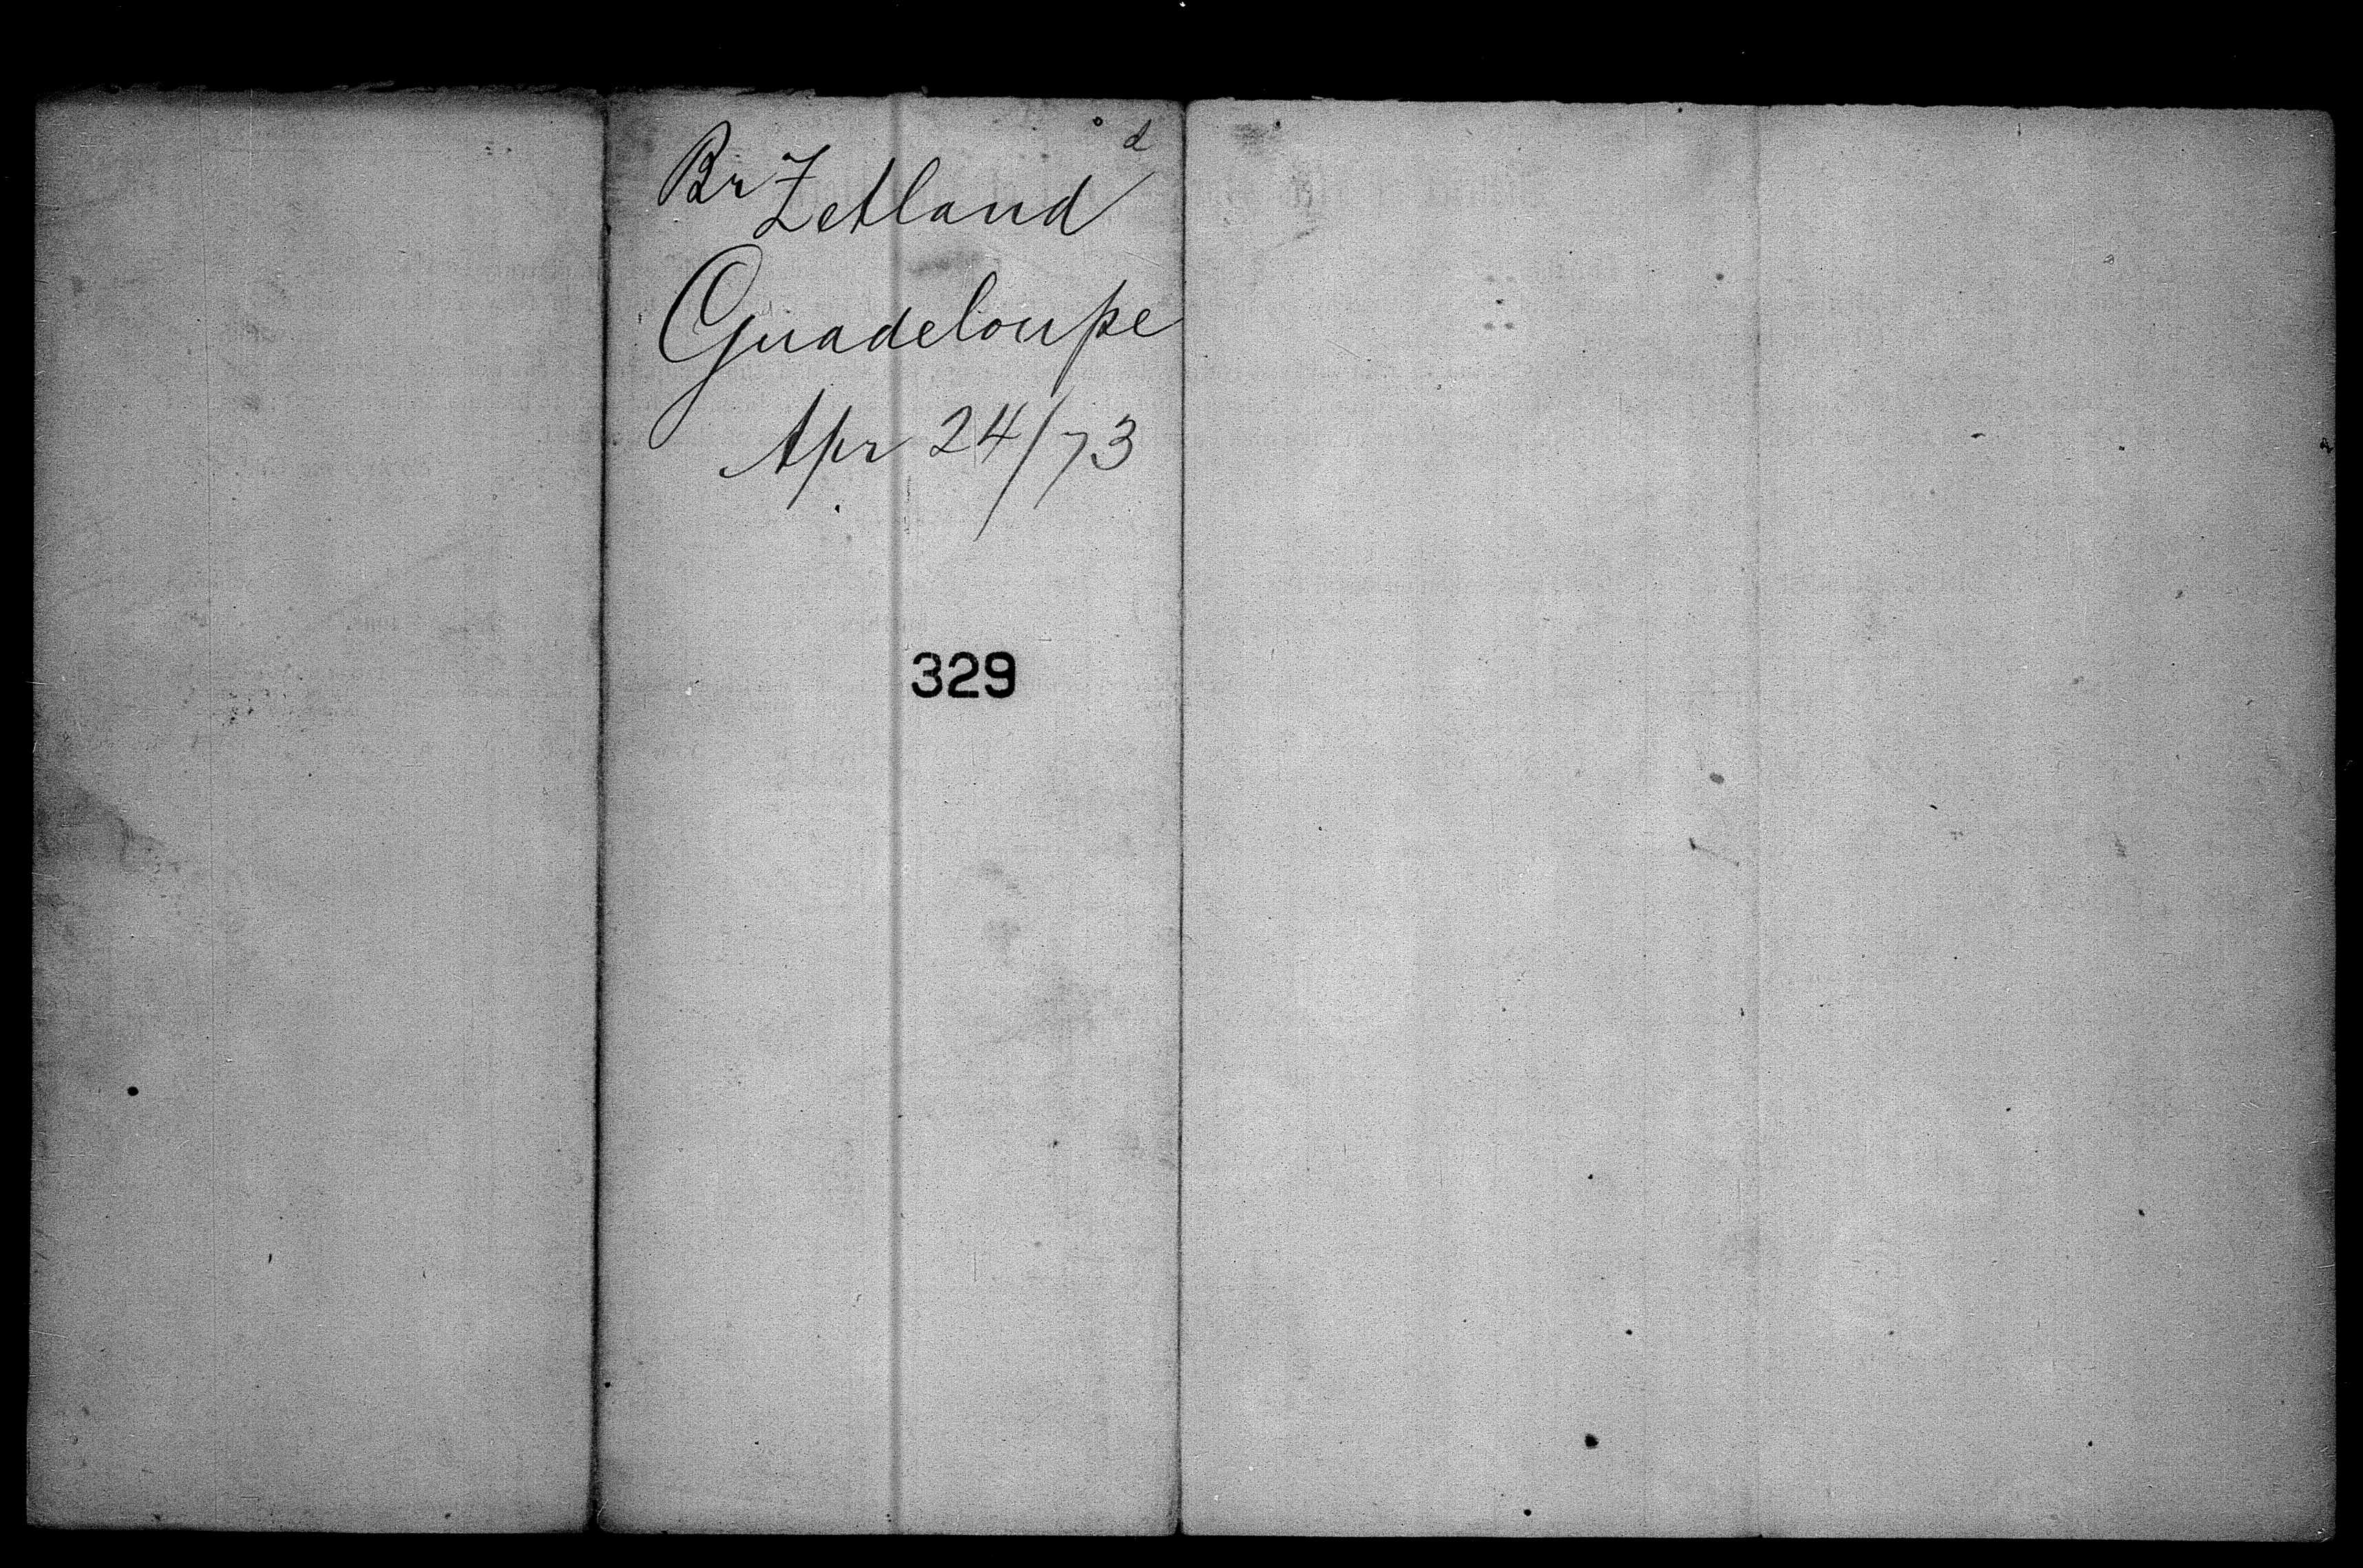 Br Zetland
Guadeloupe
Apr 24/73
329